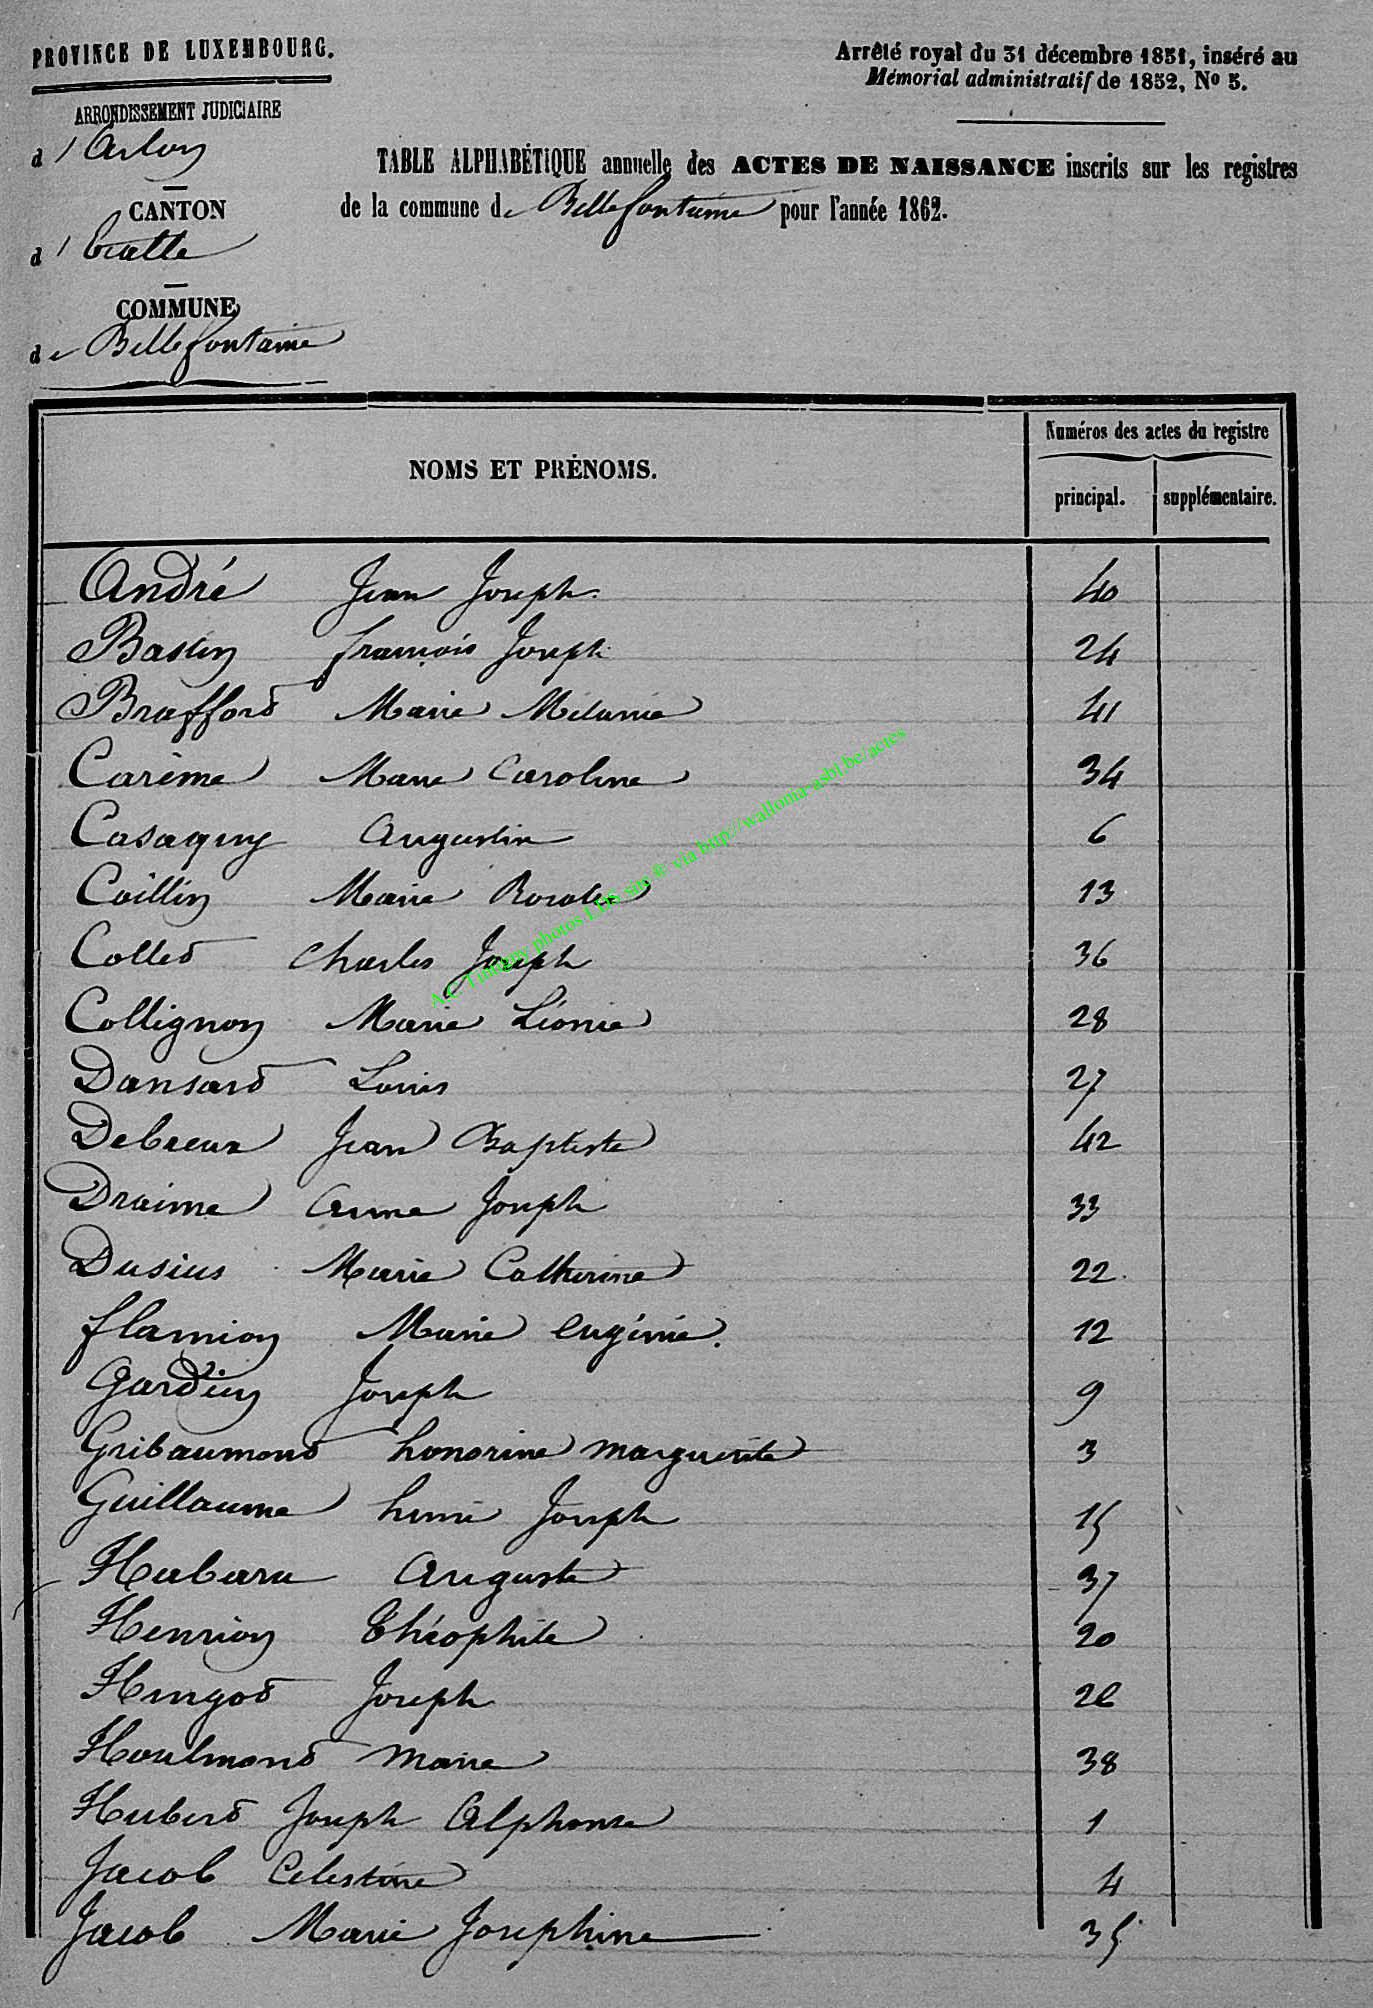 PROVINCE DE LUXEMBOURG.
Arrêté royal du 31 décembre 1851, inséré au
Mémorial administratif de 1852, No 5.
ARRONDISSEMENT JUDICIAIRE
d'Arlon
TABLE ALPHABÉTIQUE annuelle des ACTES DE NAISSANCE inscrits sur les registres
de la commune de Bellefontaine pour l'année 1862.
CANTON
d'Etalle
COMMUNE
de Bellefontaine
NOMS ET PRÉNOMS.
Numéros des actes du registre
principal. supplémentaire.
André Jean Joseph 40
Bastin François Joseph 24
Brafford Marie Mélanie 41
Carême Marie Caroline 34
Casaquy Augustin 6
Coillin Marie Rosalie 13
Collet Charles Joseph 36
Collignon Marie Léonie 28
Dansard Louis 27
Debreux Jean Baptiste 42
Draime Anne Joseph 33
Dusius Marie Catherine 22
flamion Marie Eugénie. 12
Gardien Joseph 9
Gribaumont honorine marguerite 3
Guillaume henri Joseph 15
Habaru Auguste 37
Henrion Théophile 20
Hingot Joseph 26
Houlmont Marie 38
Hubert Joseph Alphonse 1
Jacob Celestine 4
Jacob Marie Josephine 35
A.C. Tintigny photos LDS site ® via http://wallonia-asbl.be/actes